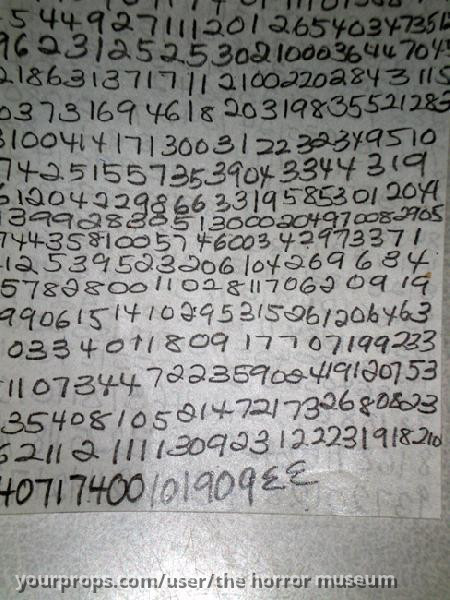 544927111201265403473512
96231252530210003644704
21863137171121002202843115
037316946182031983552128
310041417130031223234951 0
742515573539043344319
6120422986633195853012049
1399283851300020497008 2905
744358100574600342973371
1253952320610426963 4
57828001102811706209 19
99061514102953152612064 63
0334011809177707199233
1107344722359024191 20753
35408105214721732680823
62112111130923122231918210
40717400101909
yourprops.com/user/the horror museum